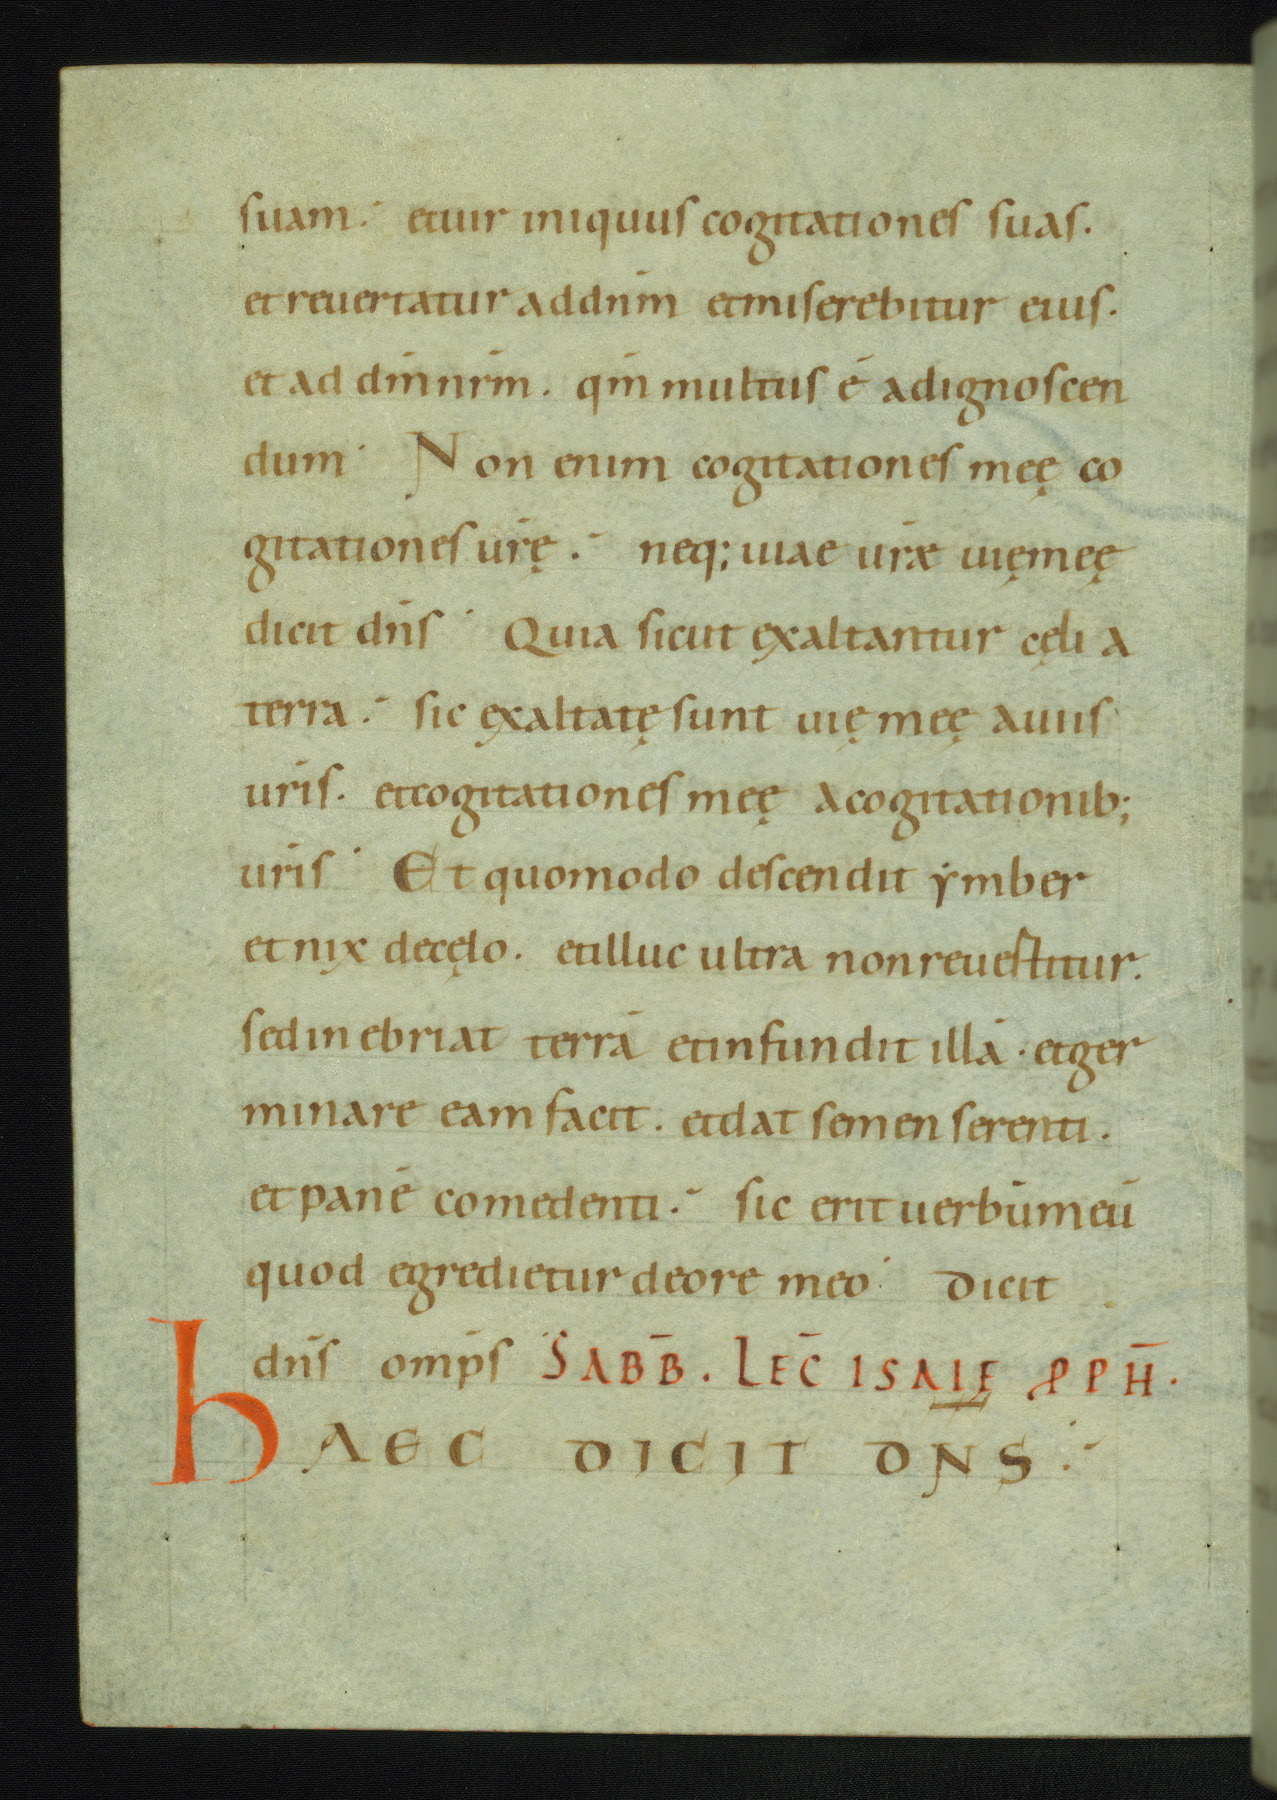 suam. et uir iniquus cogitationes suas.
et reuertatur ad dnm̄ et miserebitur eius.
et ad dm̄ nrm̄. qm̄ multus ē ad ignoscen
dum. Non enim cogitationes meę co
gitationes urę̄. neq; uiae urǣ uię meę
dicit dn̄s. Quia sicut exaltantur cęli a
terra. sic exaltatę sunt uię meę a uiis
ur̄is. et cogitationes meę a cogitationib;
ur̄is. Et quomodo descendit ẏmber
et nix de cęlo. et illuc ultra non reuestitur.
sed inebriat terrā et infundit illā. et ger
minare eam facit. et dat semen serenti.
et panē comedenti. sic erit uerbūmeū
quod egredietur de ore meo. dicit
dn̄s omp̄s SABB̄. LEC̄ ISAIE PPH̄.
HAEC DICIT DNS.